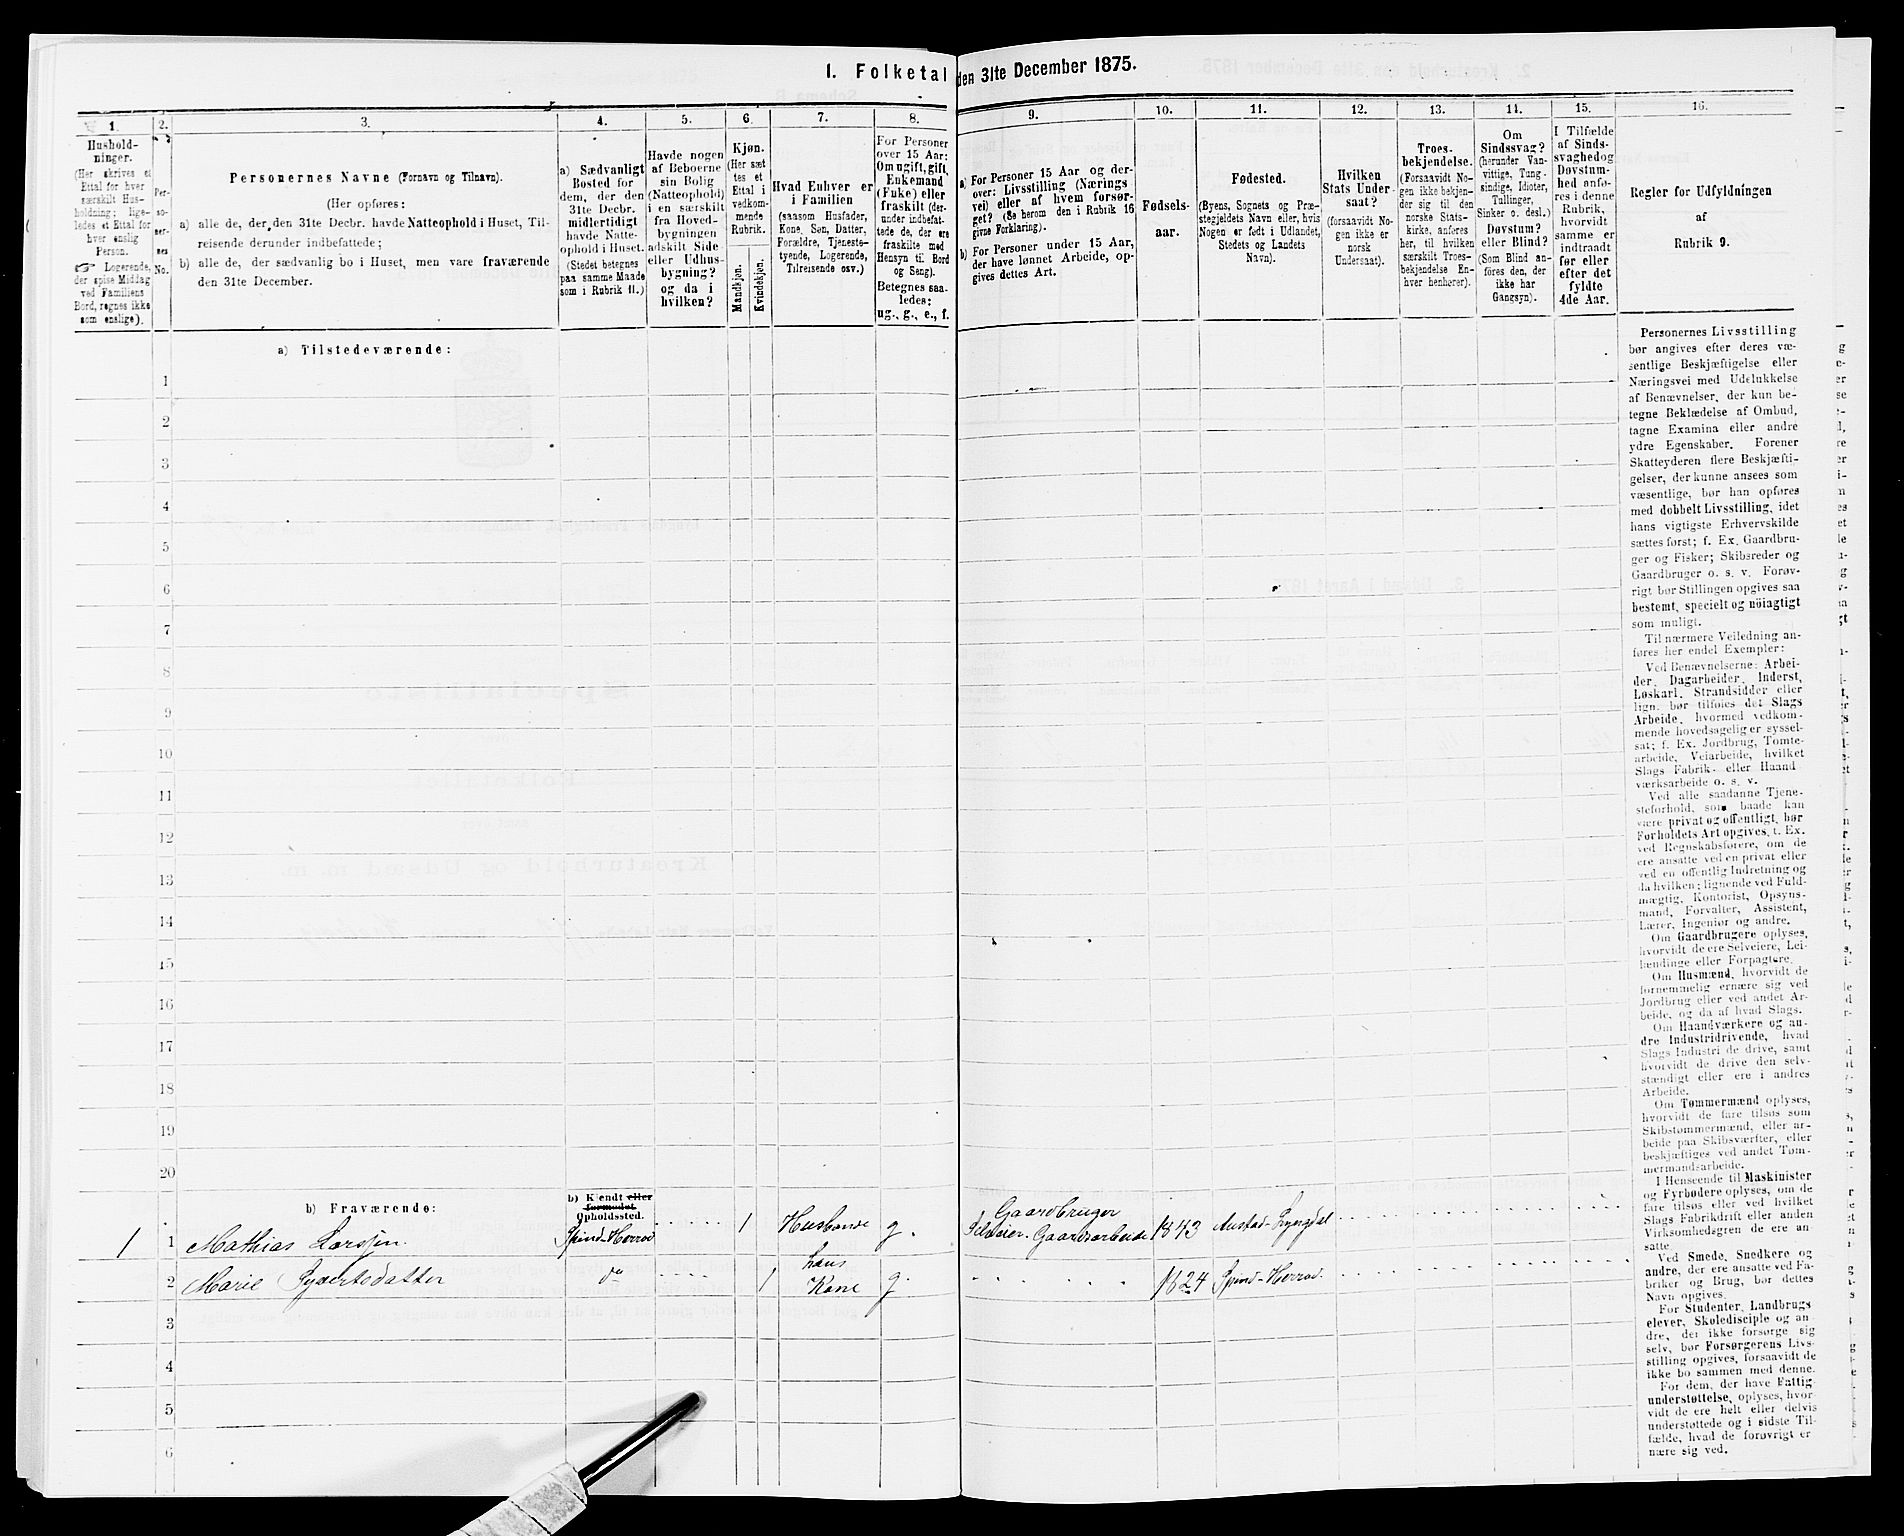 1. Folketal
den 31te December 1875.
1.
Hushold-
ninger.
(Her skrives et
Ettal for hver
særskilt Hus-
holdning; lige-
ledes et Ettal for
hver enslig
Person.
☞ Logerende,
der spise Middag
ved Familiens
Bord, regnes ikke
som enslige).
2.
Per-
so-
ner-
nes
No.
3.
Personernes Navne (Fornavn og Tilnavn).
(Her opføres:
a) alle de, der den 31te Decbr. havde Natteophold i Huset, Til-
reisende derunder indbefattede;
b) alle de, der sædvanlig bo i Huset, men vare fraværende
den 31te December.
4.
a) Sædvanligt
Bosted for
dem, der den
31te Decbr.
midlertidigt
havde Natte-
ophold i Huset.
(Stedet betegnes
paa samme Maade
som i Rubrik 11.)
5.
Havde nogen
af Beboerne
sin Bolig
(Natteophold)
i en særskilt
fra Hoved-
bygningen
adskilt Side
eller Udhus-
bygning?
og da i
hvilken?
6.
Kjøn.
(Her sæt
tes et
Ettal i
vedkom-
mende
Rubrik.
Mandkjøn.
Kvindekjøn.
7.
Hvad Enhver er
i Familien
(saasom Husfader,
Kone, Søn, Datter,
Forældre, Tjeneste-
tyende, Logerende,
Tilreisende osv.)
8.
For Personer
over 15 Aar:
Om ugift, gift,
Enkemand
(Enke) eller
fraskilt (der-
under indbefat-
tede de, der ere
fraskilte med
Hensyn til Bord
og Seng).
Betegnes saa-
ledes:
ug., g., e., f.
9.
a) For Personer 15 Aar og der-
over: Livsstilling (Nærings
vei) eller af hvem forsør-
get? (Se herom den i Rubrik 16
givne Forklaring).
b) For Personer under 15 Aar,
der have lønnet Arbeide, op-
gives dettes Art.
10.
Fødsels-
aar.
11.
Fødested.
(Byens, Sognets og Præ-
stegjeldets Navn eller, hvis
Nogen er født i Udlandet,
Stedets og Landets
Navn).
12.
Hvilken
Stats Under-
saat?
(forsaavidt No-
gen ikke er
norsk
Undersaat).
13.
Troes-
bekjendelse.
(Forsaavidt No-
gen ikke bekjen-
der sig til den
norske Stats-
kirke, anføres
her, til hvilken
særskilt Troes-
bekjendelse En-
hver henhører).
14.
Om
Sindssvag?
(herunder Van-
vittige, Tung-
sindige, Idioter,
Tullinger,
Sinker o. desl.)
Døvstum?
eller Blind?
(Som Blind an-
føres den, der
ikke har
Gangsyn).
15.
I Tilfælde
af Sinds-
svaghed og
Døvstum-
hed anfø-
res i denne
Rubrik,
hvorvidt
samme er
indtraadt
før eller
efter det
fyldte
4de Aar.
16.
Regler for Udfyldningen
af
Rubrik 9.
a) Tilstedeværende:
1
2
3
4
5
6
7
8
9
10
11
12
13
14
15
16
17
18
19
20
b) Fraværende:
b) Kjendt eller
formodet
Opholdssted.
1 1 Mathias Larssen Spind-Herred 1 Husbonde g. Gaardbruger
Selveier. Gaardsarbeide 1843
2 Marie Syvertsdatter do 1 hans
Kone g. 1824 Spind-Herred.
3
4
5
6
Personernes Livsstilling
bør angives efter deres væ-
sentlige Beskjæftigelse eller
Næringsvei med Udelukkelse
af Benævnelser, der kun be-
tegne Beklædelse af Ombud,
tagne Examina eller andre
ydre Egenskaber. Forener
Skatteyderen flere Beskjæfti-
gelser, der kunne ansees som
væsentlige, bør han opføres
med dobbelt Livsstilling, idet
hans vigtigste Erhvervskilde
sættes først; f. Ex. Gaardbru-
ger og Fisker; Skibsreder og
Gaardbruger o. s. v. Forøv-
rigt bør Stillingen opgives saa
bestemt, specielt og nöiagtigt
som muligt.
Til nærmere Veiledning an-
føres her endel Exempler:
Ved Benævnelserne: Arbei-
der, Dagarbeider, Inderst,
Løskarl, Strandsidder eller
lign. bør tilføies det Slags
Arbeide, hvormed vedkom-
mende hovedsagelig er syssel-
sat; f. Ex. Jordbrug, Tømte-
arbeide, Veiarbeide, hvilket
Slags Fabrik- eller Haand
værksarbeide o. s. v.
Ved alle saadanne Tjene-
steforhold, som baade kan
være privat og offentligt, bør
Forholdets Art opgives, t. Ex.
ved Regnskabsførere, om de
ere ansatte ved en privat eller
ved en offentlig Indretning og
da hvilken; lignende ved Fuld-
mægtig, Kontorist, Opsyns-
mand, Forvalter, Assistent,
Lærer, Ingeniør og andre.
Om Gaardbrugere oplyses,
hvorvidt de ere Selveiere, Lei-
lændinge eller Forpagtere.
Om Husmænd, hvorvidt de
fornemmelig ernære sig ved
Jordbrug eller ved andet Ar-
beide, og da af hvad Slags.
Om Haandværkere og an-
dre Industridrivende, hvad
Slags Industri de drive, samt
hvorvidt de drive den selv-
stændigt eller ere i andres
Arbeide.
Om Tømmermænd oplyses,
hvorvidt de fare tilsøs som
Skibstømmermænd, eller ar-
beide paa Skibsværfter, eller
beskjæftiges ved andet Tøm-
mermandsarbeide.
I Henseende til Maskinister
og Fyrbødere oplyses, om de
fare tilsøs eller ved hvilket
Slags Fabrikdrift eller anden
Virksomhedsgren de ere an-
satte.
Ved Smede, Snedkere og
andre, der ere ansatte ved Fa-
briker og Brug, bør dettes
Navn opgives.
For Studenter, Landbrugs
elever, Skoledisciple og an-
dre, der ikke forsørge sig
selv, bør Forsørgerens Livs-
stilling opgives, forsaavidt de
ikke bo sammen med denne.
For dem, der have Fattig
understøttelse, oplyses, hvor-
vidt de ere helt eller delvis
understøttede og i sidste Til-
fælde, hvad de forøvrigt er
nære sig ved.